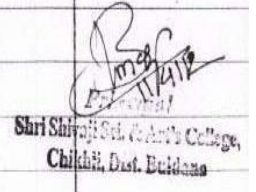 11/4/12
Principal
Shri Shivaji Sci. & Art's College,
Chikhli, Dist. Buldana